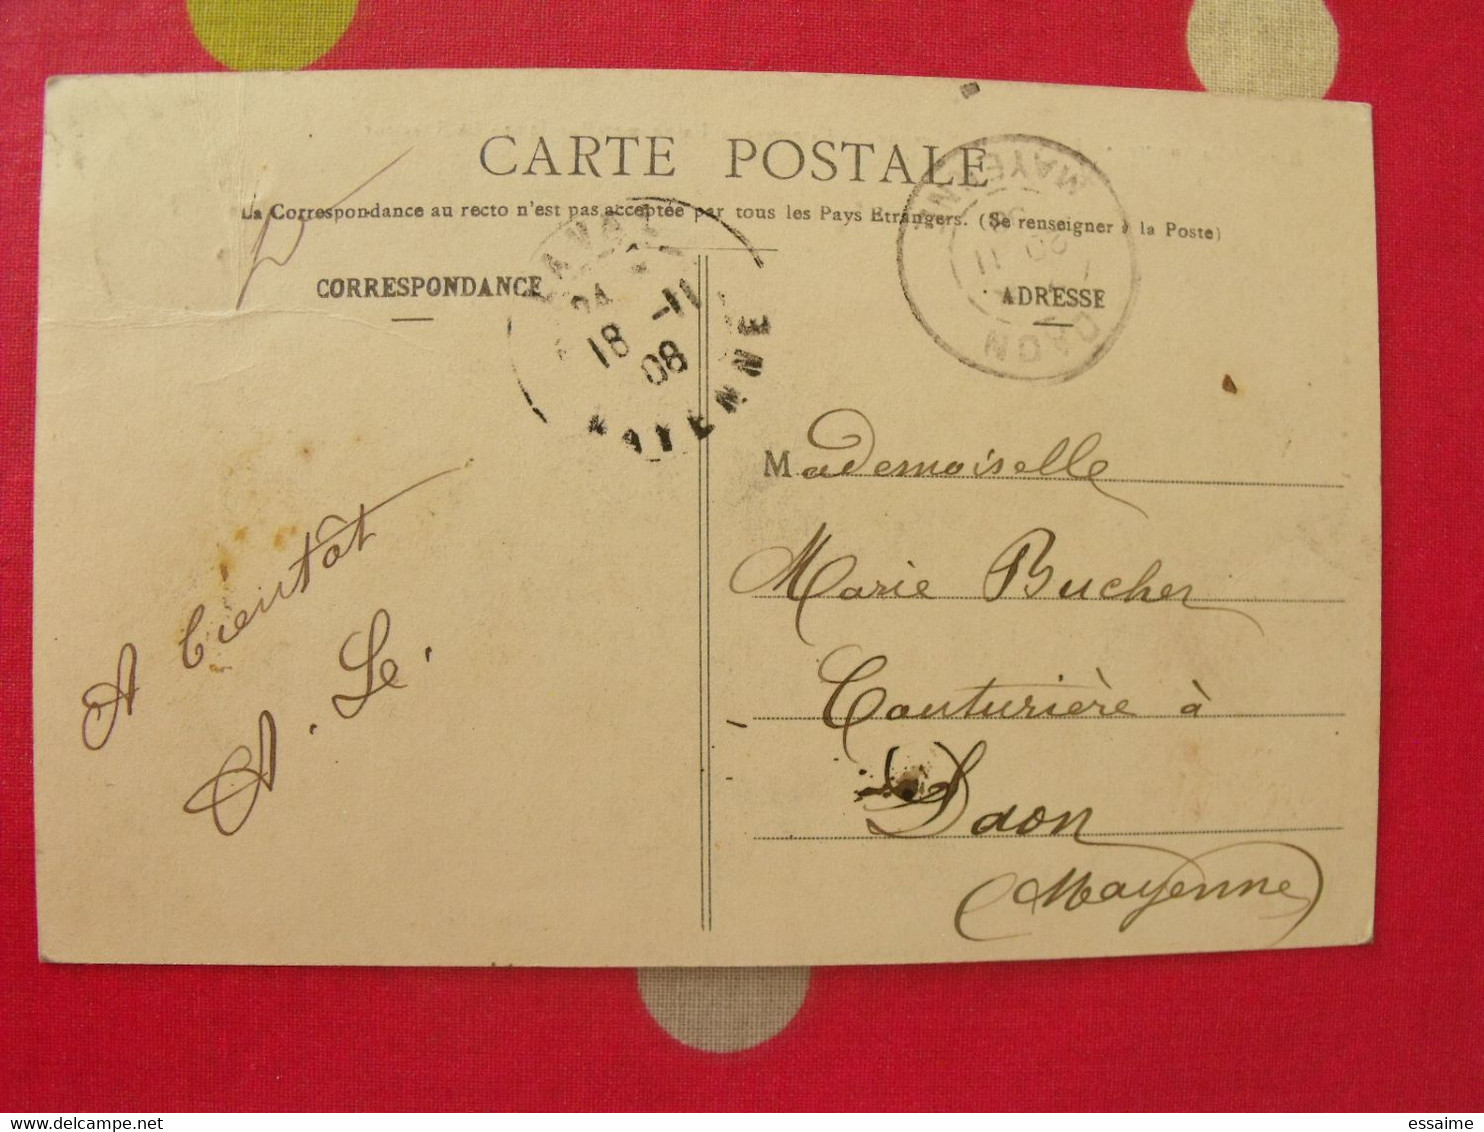 CARTE POSTALE
La Correspondance au recto n'est pas acceptée par tous les Pays Etrangers. (Se renseigner à la Poste)
CORRESPONDANCE
ADRESSE
18 -11
08
MAYENNE
MAYENNE
20 11
DAON
Mademoiselle
Marie Bucher
Couturière à
Daon
(Mayenne)
A bientôt
A. Le.
delcampe.net
essaime